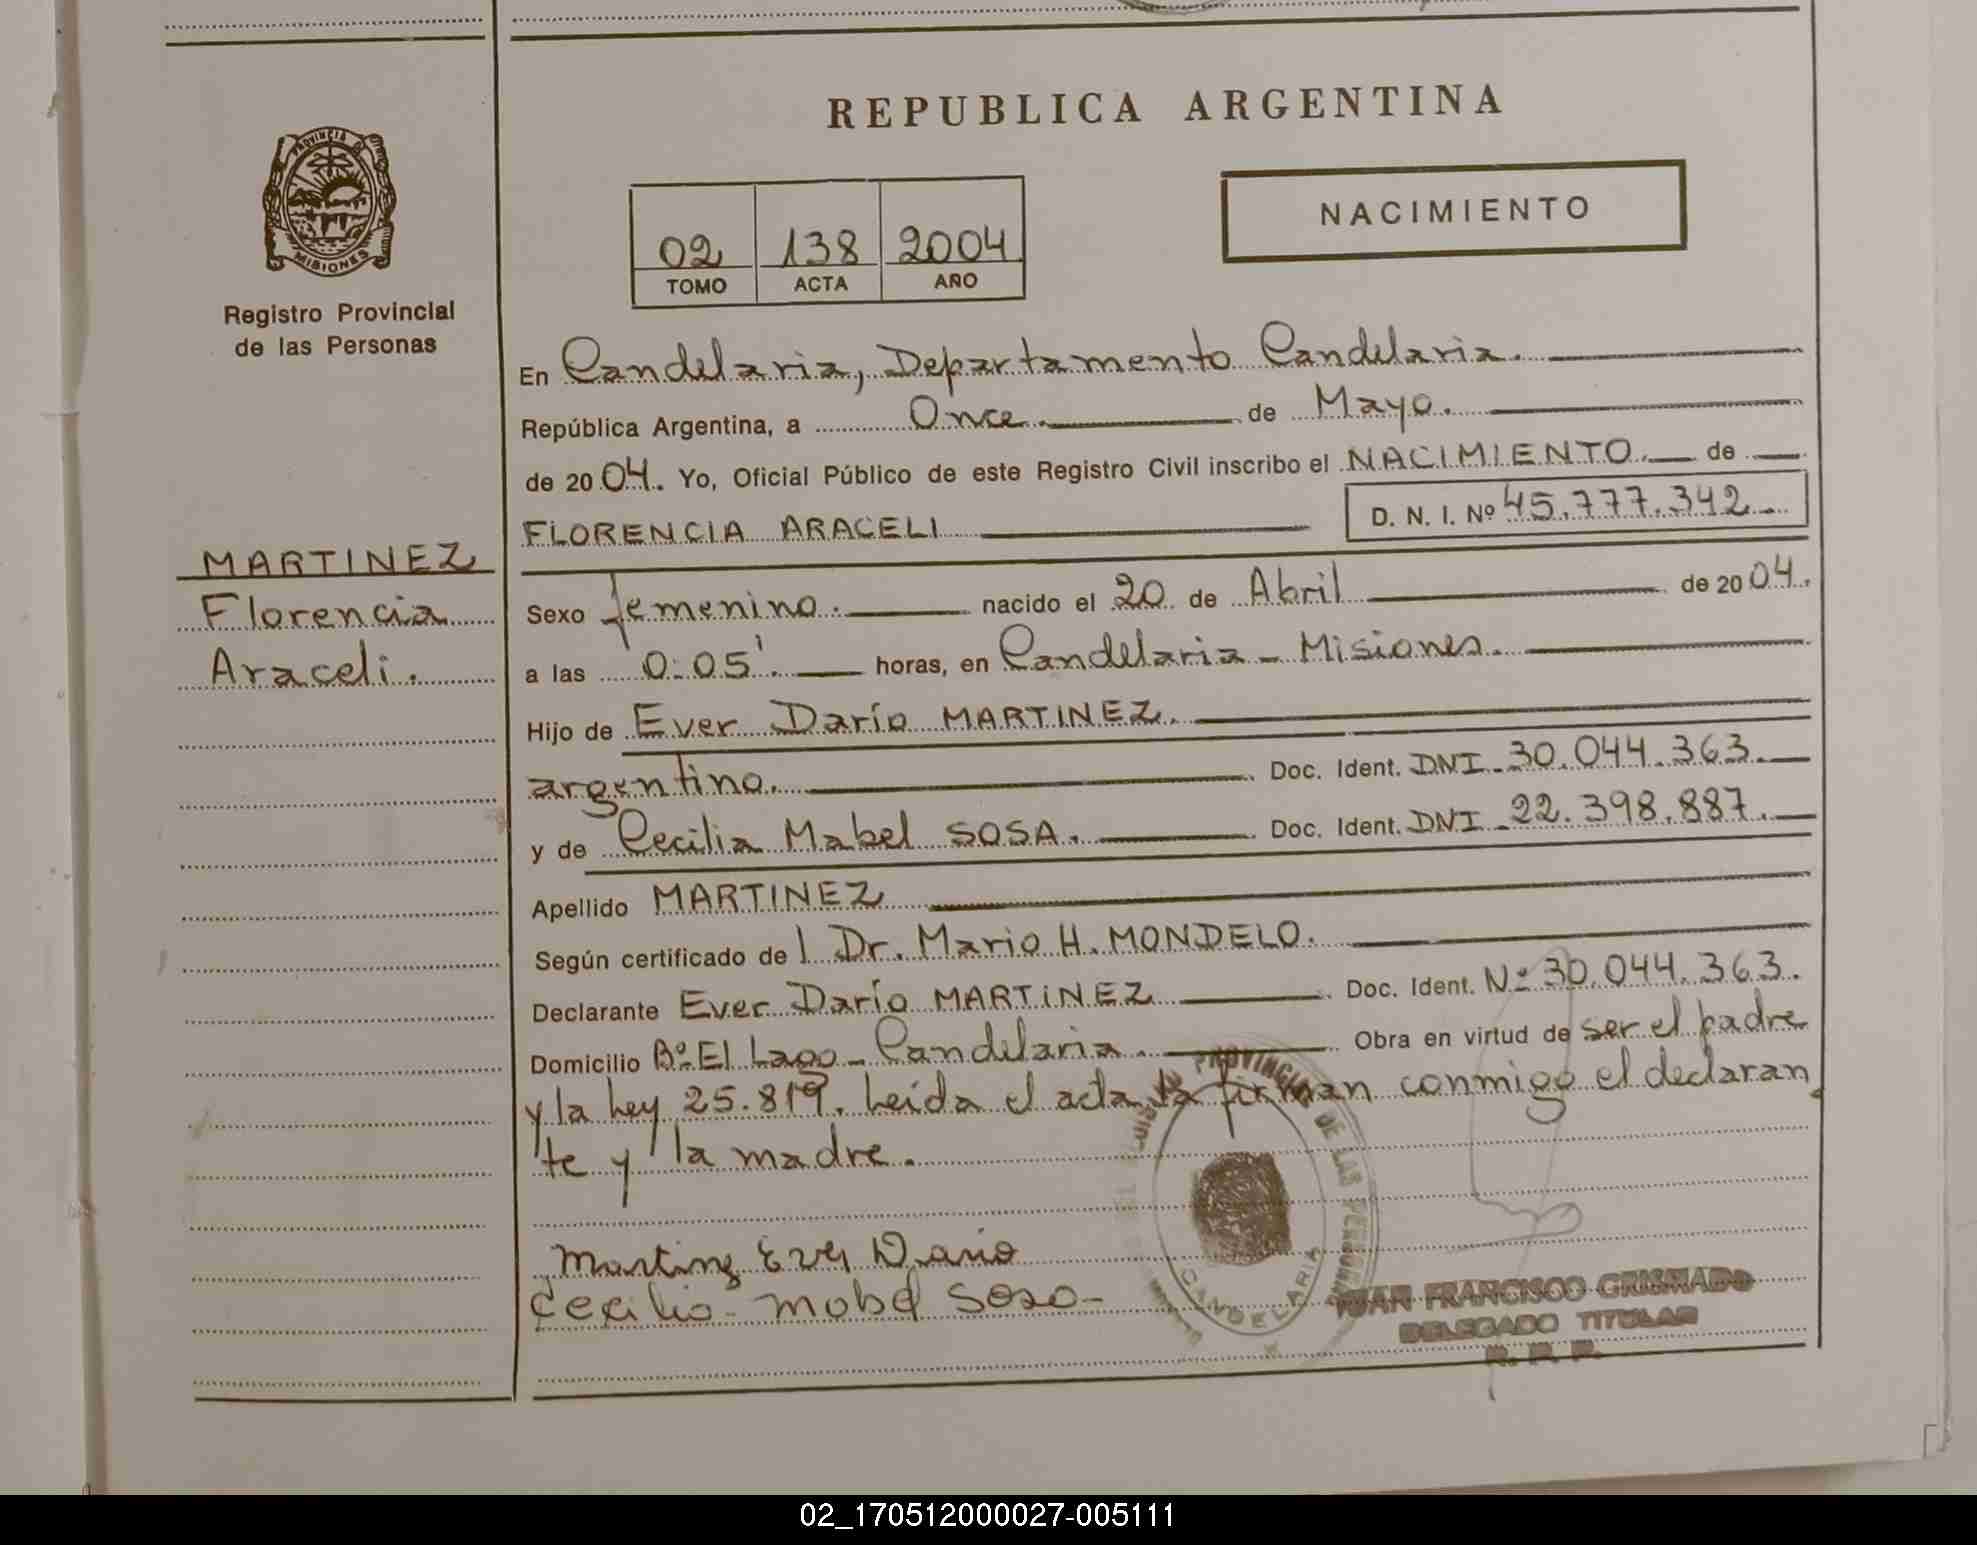 REPUBLICA ARGENTINA
PROVINCIA DE
MISIONES
Registro Provincial
de las Personas
NACIMIENTO
02 138 2004
TOMO ACTA AÑO
En Candelaria, Departamento Candelaria.
República Argentina, a Once de Mayo.
de 2004. Yo, Oficial Público de este Registro Civil inscribo el NACIMIENTO de
FLORENCIA ARACELI D. N. I. Nº 45.777.342
MARTINEZ
Florencia
Araceli.
Sexo femenino. nacido el 20 de Abril de 2004.
a las 0:05'. horas, en Candelaria - Misiones.
Hijo de Ever Darío MARTINEZ.
argentino. Doc. Ident. DNI - 30.044.363.
y de Cecilia Mabel SOSA. Doc. Ident. DNI - 22.398.887.
Apellido MARTINEZ
Según certificado de l Dr. Mario H. MONDELO.
Declarante Ever Darío MARTINEZ Doc. Ident. Nº 30.044.363.
Domicilio Bº El Lago - Candelaria. Obra en virtud de ser el padre
y la Ley 25.819. Leída el acta la firman conmigo el declaran
te y la madre.
Martinez Ever Dario
Cecilia mabel Sosa -
PROVINCIAL DE LAS PERSONAS
CANDELARIA
JUAN FRANCISCO GRISMADO
DELEGADO TITULAR
R. P. P.
02_170512000027-005111